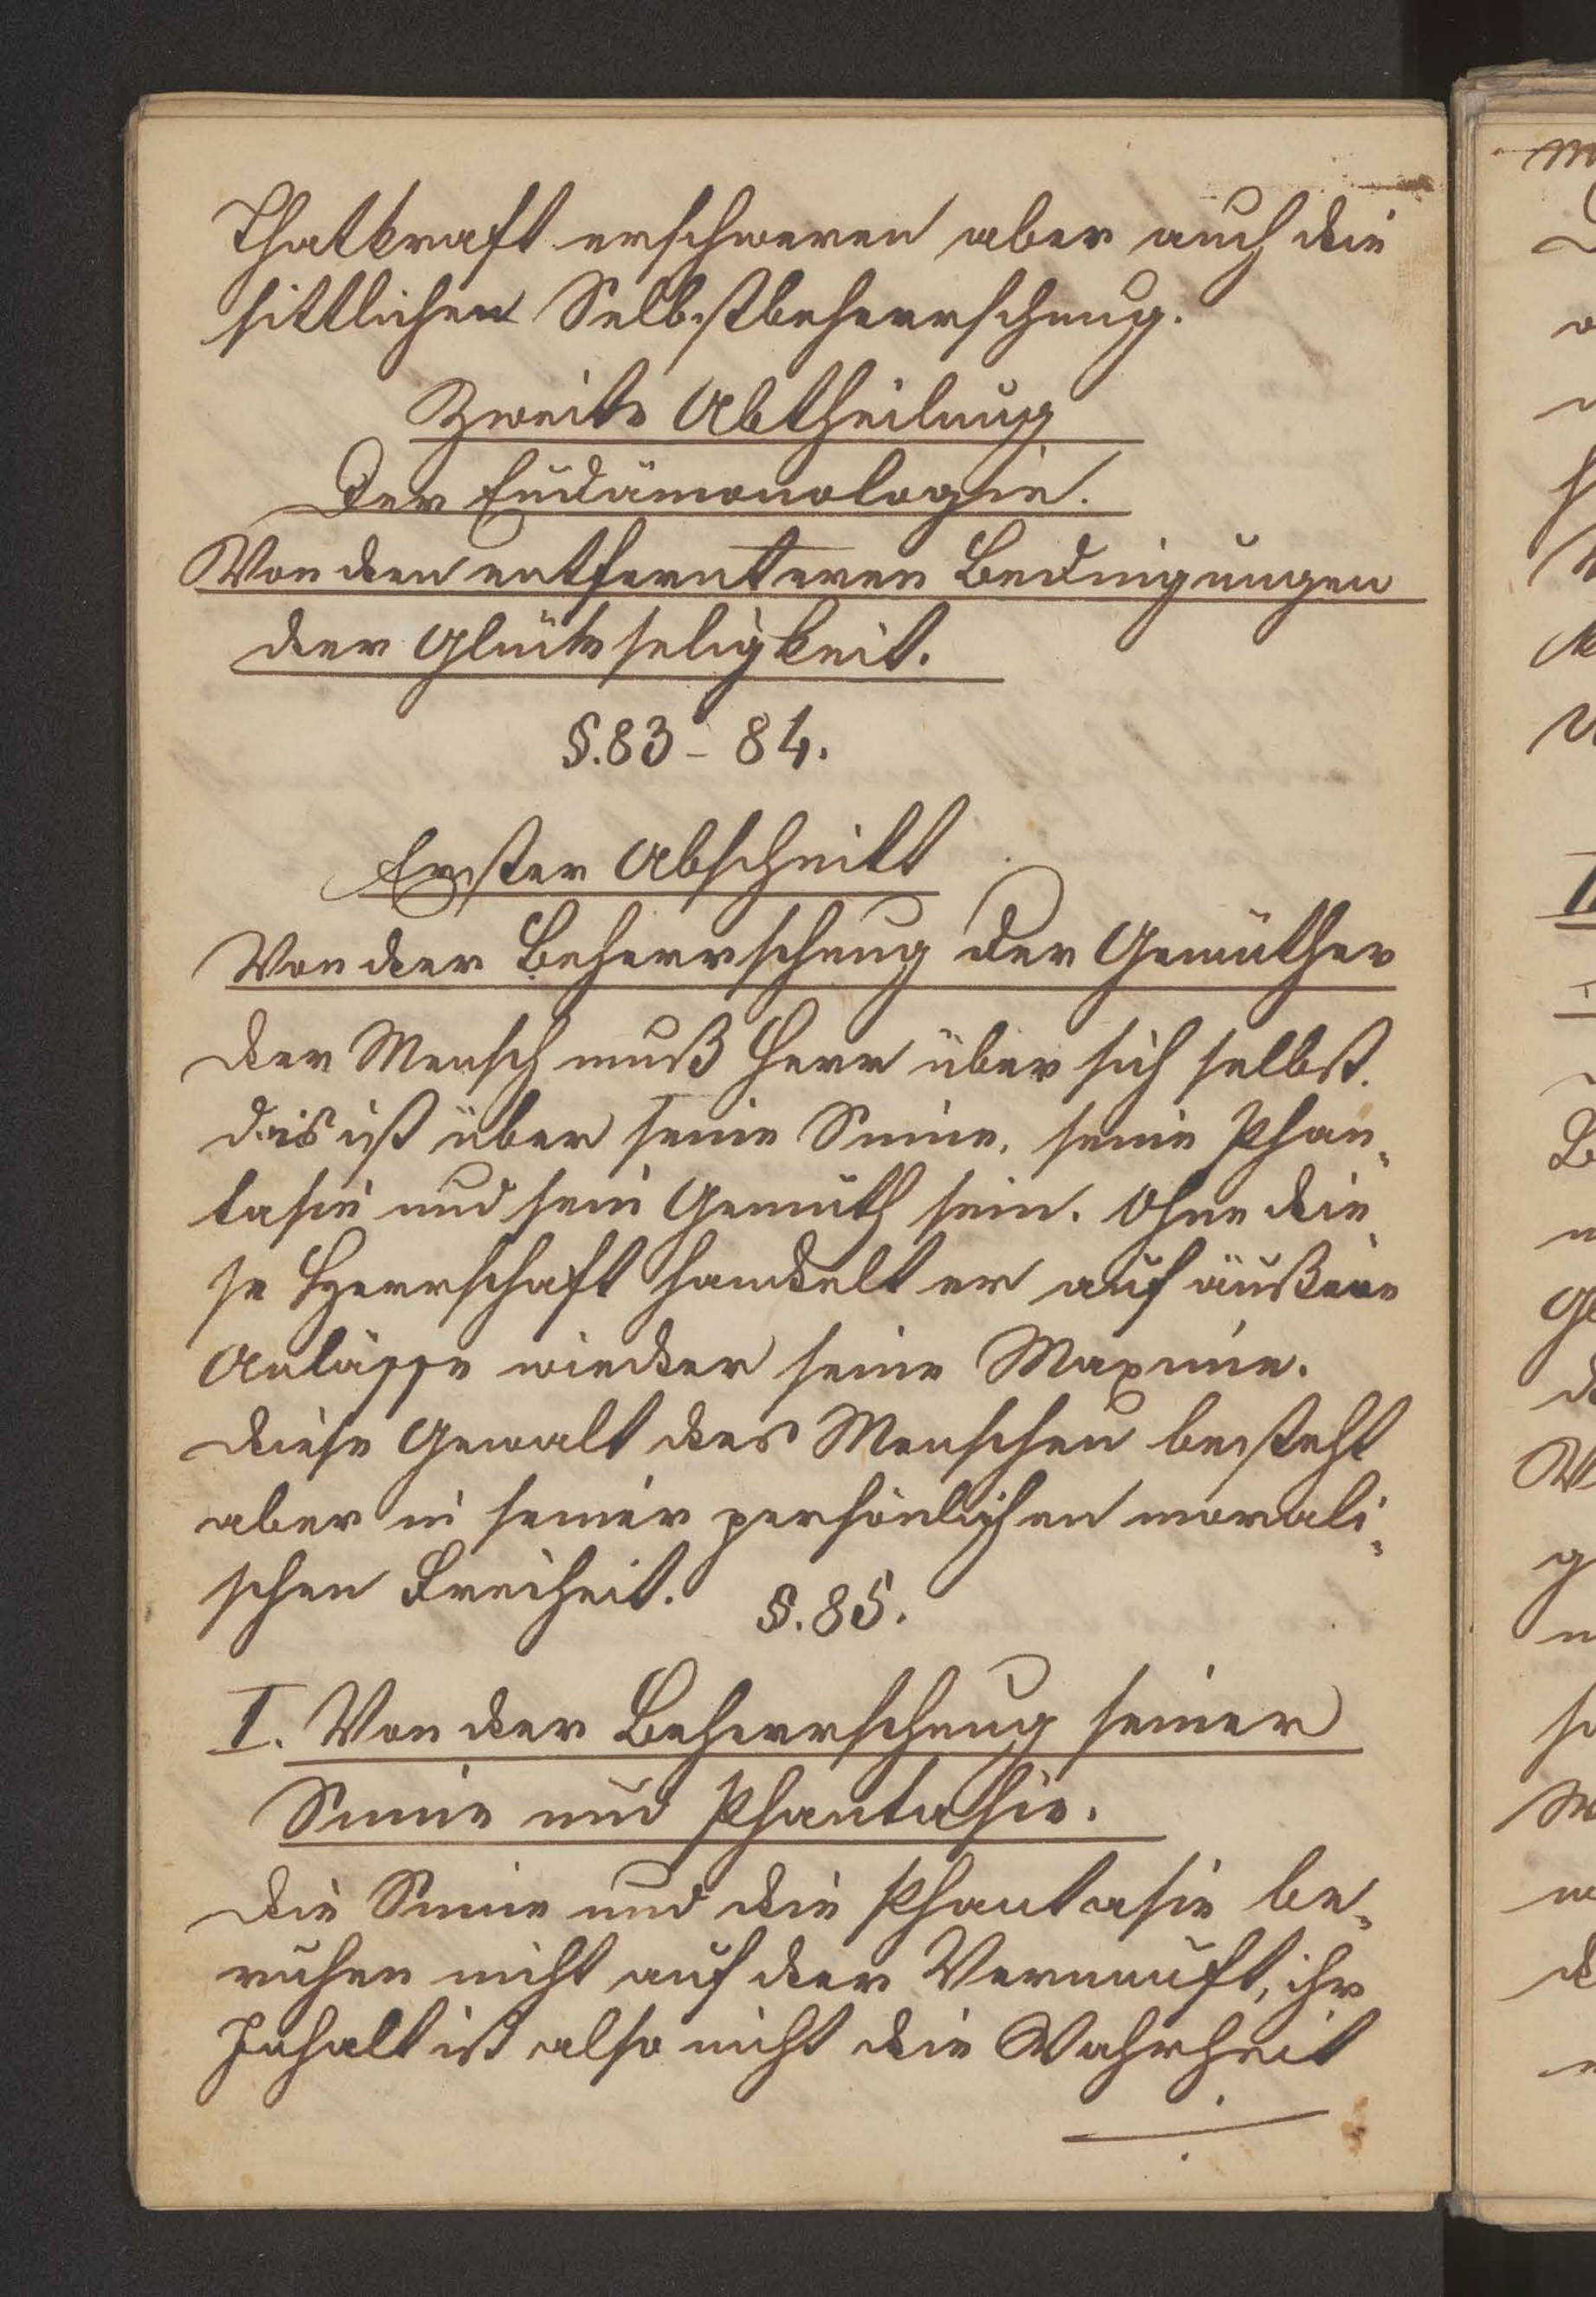 Thatkraft erschweren aber auch die
sittlichen Selbstbeherrschung.
Zweite Abtheilung
Der Eudämonologie.
Von den entfernteren Bedingungen
der Glückseligkeit.
§. 83 - 84.
Erster Abschnitt
Von der Beherrschung der Gemüther
der Mensch muß Herr über sich selbst.
das ist über seine Sinne, seine Phan-
tasie und sein Gemüth sein. Ohne die-
se Herrschaft handelt er auf äußere
Anlässe wieder seine Maxime.
diese Gewalt des Menschen besteht
aber in seiner persönlichen morali-
schen Freiheit. §. 85.
I. Von der Beherrschung seiner
Sinne und Phantasie.
die Sinne und die Phantasie be-
ruhen nicht auf der Vernunft, ihr
Inhalt ist also nicht die Wahrheit